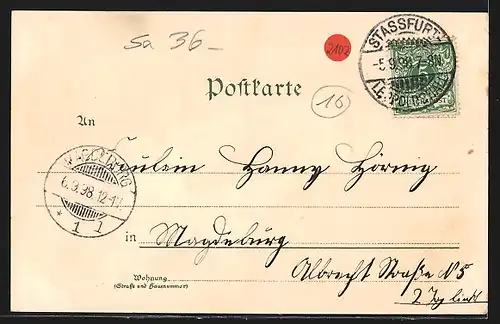 Sa 36.-
2102
STASSFURT-
-5.9.98. 7-8N.
Postkarte
16
An
Fräulein Hanny Hörnig
MAGDEBURG
6.9.98.12-1V.
* 1 1
in Magdeburg
Wohnung
(Straße und Hausnummer)
Albrecht Straße N 5
2 Trp links